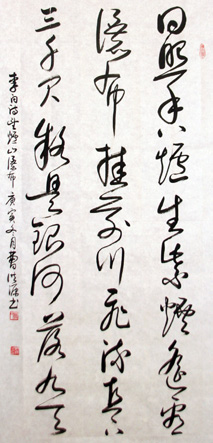 日照香爐生紫煙遥看
瀑布挂前川飛流直下
三千尺疑是銀河落九天
李白诗望爐山瀑布庚寅冬月曹书